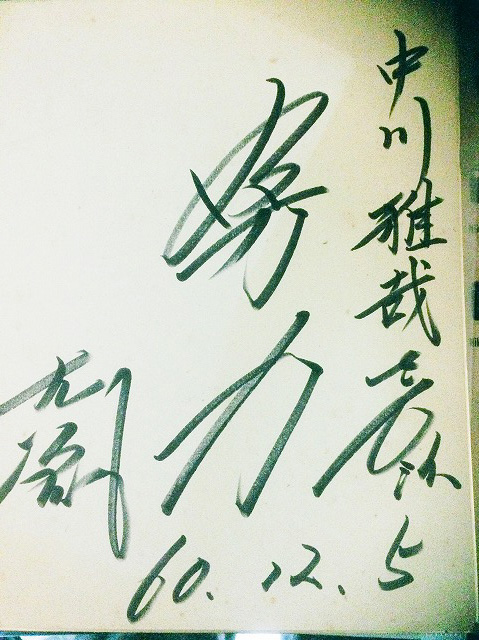 中川雅哉君江
努力
60.12.5